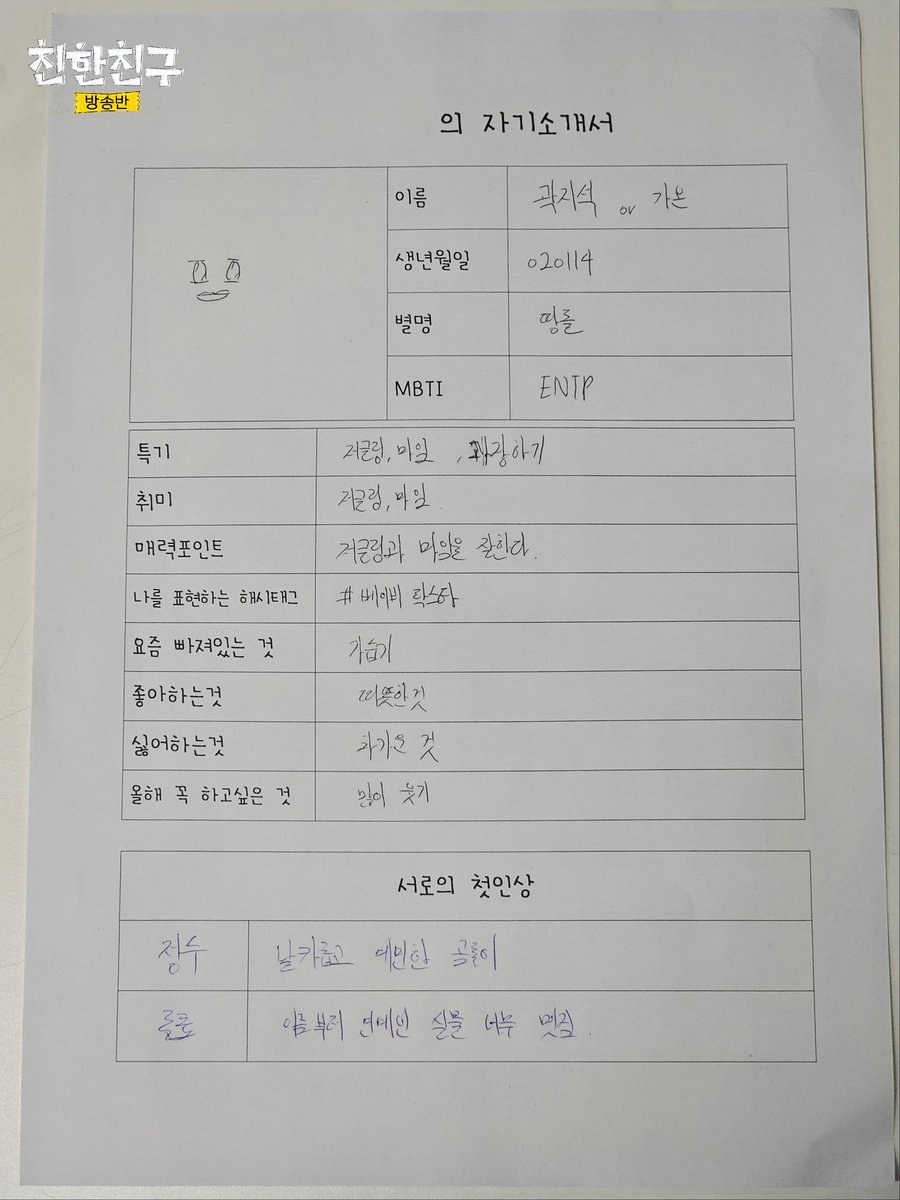 친한친구
방송반
의 자기소개서
이름 곽지석 or 가온
생년월일 020114
별명 땅를
MBTI ENTP
특기 저글링, 마임, 과장하기
취미 저글링, 마임.
매력포인트 저글링과 마임을 잘한다.
나를 표현하는 해시태그 #베이비 락스타
요즘 빠져있는 것 가습기
좋아하는것 따뜻한것
싫어하는것 차가운 것
올해 꼭 하고싶은 것 많이 웃기
서로의 첫인상
정수 날카롭고 예민한 곰돌이
이름부터 연예인 실물 너무 멋짐.